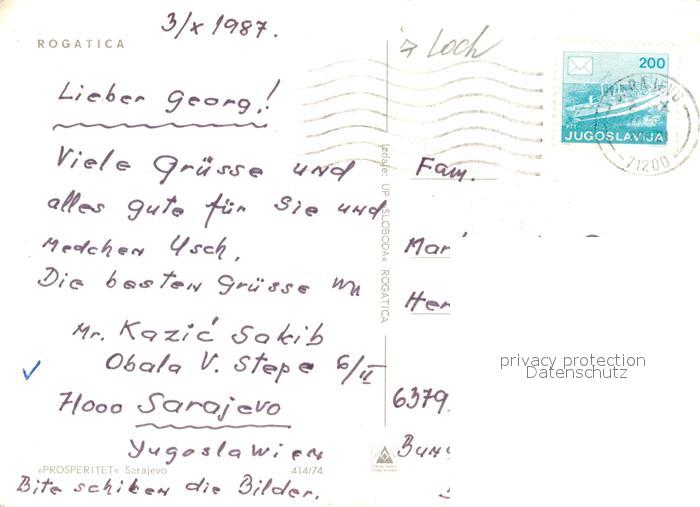 3/X 1987.
ROGATICA
Lieber Georg!
Viele Grüsse und
alles gute für Sie und
Medchen Usch,
Die besten Grüsse
Mr. Kazić Sakib
Obala V. Stepe 6/II
71000 Sarajevo
Yugoslawien
»PROSPERITET« Sarajevo
414/74
Bite schiken die Bilder.
Izdaje: UP »SLOBODA« ROGATICA
Loch
200
JUGOSLAVIJA
71200
Fam.
Mar
Her
6379
privacy protection
Datenschutz